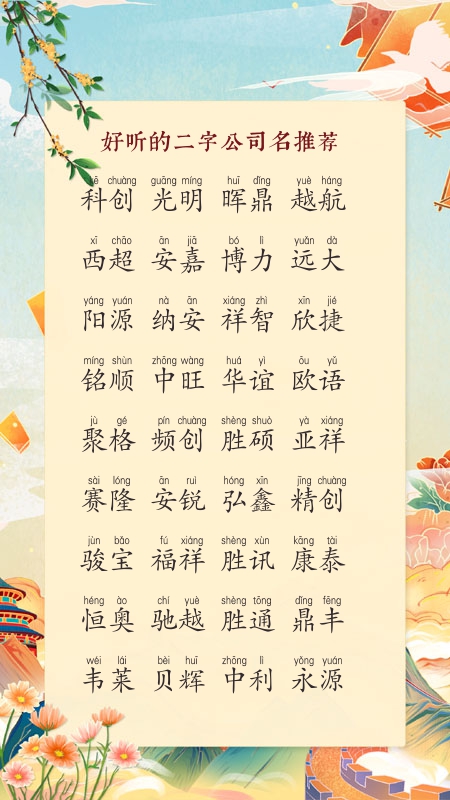 好听的二字公司名推荐
kē chuàng guāng míng huī dǐng yuè háng
科创 光明 晖鼎 越航
xī chāo ān jiā bó lì yuǎn dà
西超 安嘉 博力 远大
yáng yuán nà ān xiáng zhì xīn jié
阳源 纳安 祥智 欣捷
míng shùn zhōng wàng huá yì ōu yǔ
铭顺 中旺 华谊 欧语
jù gé pín chuàng shèng shuò yà xiáng
聚格 频创 胜硕 亚祥
sài lóng ān ruì hóng xīn jīng chuàng
赛隆 安锐 弘鑫 精创
jùn bǎo fú xiáng shèng xùn kāng tài
骏宝 福祥 胜讯 康泰
héng ào chí yuè shèng tōng dǐng fēng
恒奥 驰越 胜通 鼎丰
wéi lái bèi huī zhōng lì yǒng yuán
韦莱 贝辉 中利 永源